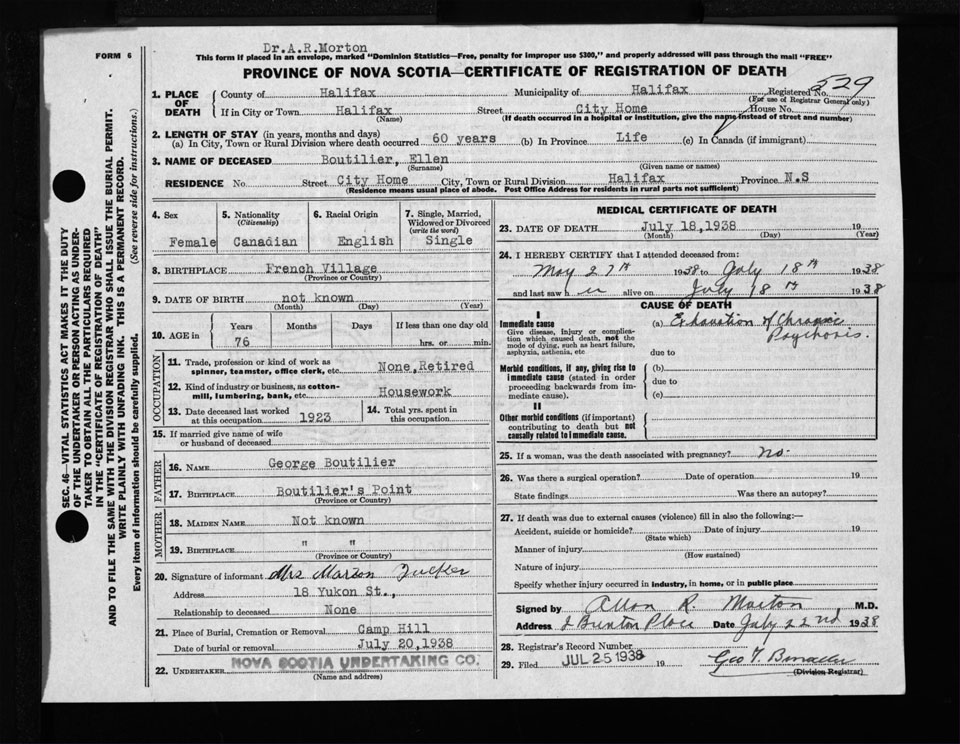 FORM 6
Dr.A.R.Morton
This form if placed in an envelope, marked "Dominion Statistics—Free, penalty for improper use $300," and properly addressed will pass through the mail "FREE"
PROVINCE OF NOVA SCOTIA—CERTIFICATE OF REGISTRATION OF DEATH
529
1. PLACE OF DEATH
County of Halifax Municipality of Halifax Registered No.
(For use of Registrar General only)
If in City or Town Halifax Street City Home House No.
(Name) (If death occurred in a hospital or institution, give the name instead of street and number)
2. LENGTH OF STAY (in years, months and days)
(a) In City, Town or Rural Division where death occurred 60 years (b) In Province Life (c) In Canada (if immigrant)
3. NAME OF DECEASED Boutilier, Ellen
(Surname) (Given name or names)
RESIDENCE No. Street City Home City, Town or Rural Division Halifax Province N.S
(Residence means usual place of abode. Post Office Address for residents in rural parts not sufficient)
4. Sex Female
5. Nationality (Citizenship) Canadian
6. Racial Origin English
7. Single, Married, Widowed or Divorced (write the word) Single
8. BIRTHPLACE French Village
(Province or Country)
9. DATE OF BIRTH not known
(Month) (Day) (Year)
10. AGE in Years Months Days If less than one day old
76 hrs. or min.
OCCUPATION
11. Trade, profession or kind of work as spinner, teamster, office clerk, etc. None,Retired
12. Kind of industry or business, as cotton-mill, lumbering, bank, etc. Housework
13. Date deceased last worked at this occupation 1923
14. Total yrs. spent in this occupation
15. If married give name of wife or husband of deceased
FATHER
16. NAME George Boutilier
17. BIRTHPLACE Boutilier's Point
(Province or Country)
MOTHER
18. MAIDEN NAME Not known
19. BIRTHPLACE " "
(Province or Country)
20. Signature of informant Mrs Marion Tucker
Address 18 Yukon St.,
Relationship to deceased None
21. Place of Burial, Cremation or Removal Camp Hill
Date of burial or removal July 20,1938
22. UNDERTAKER NOVA SCOTIA UNDERTAKING CO.
(Name and address)
MEDICAL CERTIFICATE OF DEATH
23. DATE OF DEATH July 18,1938 19
(Month) (Day) (Year)
24. I HEREBY CERTIFY that I attended deceased from:
May 27th 1938 to July 18th 1938
and last saw her alive on July 18th 1938
CAUSE OF DEATH
I
Immediate cause
Give disease, injury or complication which caused death, not the mode of dying, such as heart failure, asphyxia, asthenia, etc
(a) Exhaustion of Chronic
Psychosis.
due to
Morbid conditions, if any, giving rise to immediate cause (stated in order proceeding backwards from immediate cause).
(b)
due to
(c)
II
Other morbid conditions (if important) contributing to death but not causally related to immediate cause.
25. If a woman, was the death associated with pregnancy? no.
26. Was there a surgical operation? Date of operation 19
State findings Was there an autopsy?
27. If death was due to external causes (violence) fill in also the following:—
Accident, suicide or homicide? Date of injury 19
(State which)
Manner of injury
(How sustained)
Nature of injury
Specify whether injury occurred in industry, in home, or in public place
Signed by Allan R. Morton M.D.
Address Place Date July 22nd 1938
28. Registrar's Record Number
29. Filed JUL 25 1938 19 Geo T.
(Division Registrar)
SEC. 46—VITAL STATISTICS ACT MAKES IT THE DUTY
OF THE UNDERTAKER OR PERSON ACTING AS UNDER-
TAKER TO OBTAIN ALL THE PARTICULARS REQUIRED
IN THE "CERTIFICATE OF REGISTRATION OF DEATH"
AND TO FILE THE SAME WITH THE DIVISION REGISTRAR WHO SHALL ISSUE THE BURIAL PERMIT.
WRITE PLAINLY WITH UNFADING INK. THIS IS A PERMANENT RECORD.
Every item of information should be carefully supplied. (See reverse side for instructions.)